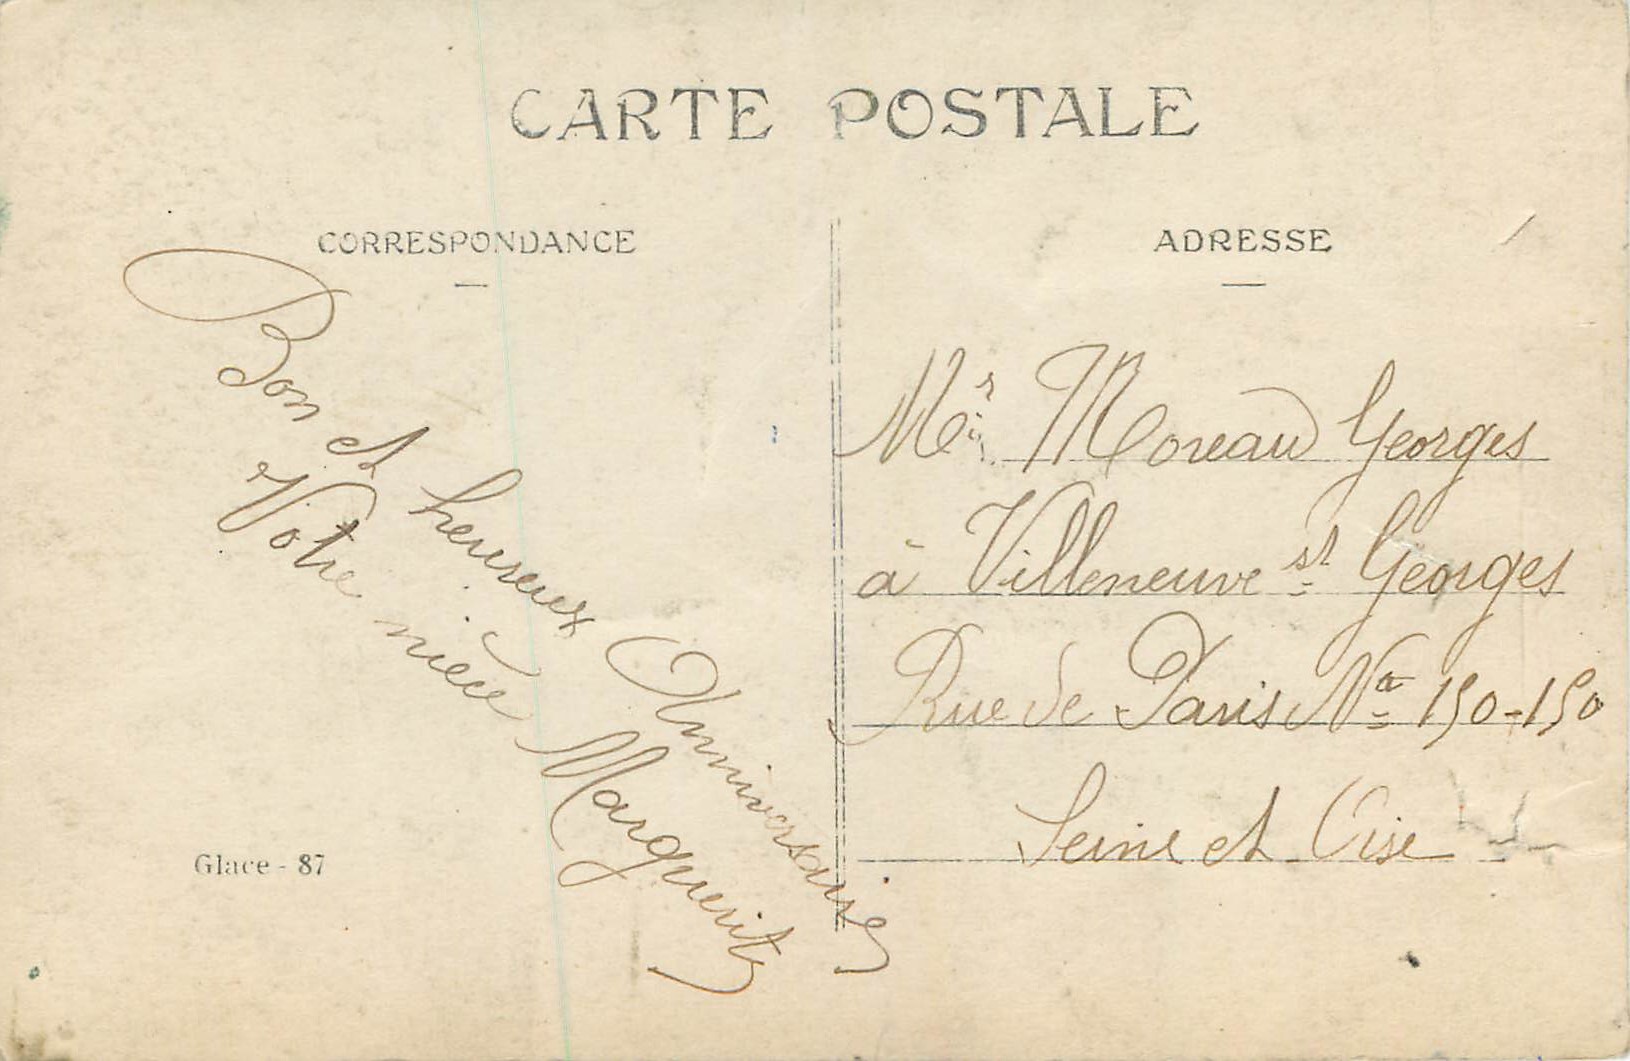 CARTE POSTALE
CORRESPONDANCE
Bon et heureux Anniversaire
Votre nièce Marguerite
Glace - 87
ADRESSE
Mr Moreau Georges
à Villeneuve st Georges
Rue de Paris No 150-150
Seine et Oise